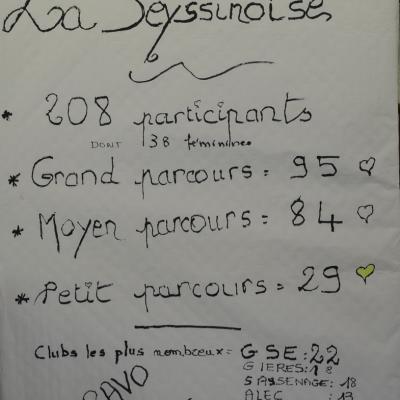 La Seyssinoise
* 208 participants
DONT 38 féminines
* Grand parcours = 95
* Moyen parcours = 84
* Petit parcours = 29
Clubs les plus nombreux = GSE : 22
GIERES : 18
SASSENAGE : 18
ALEC : 13
BRAVO